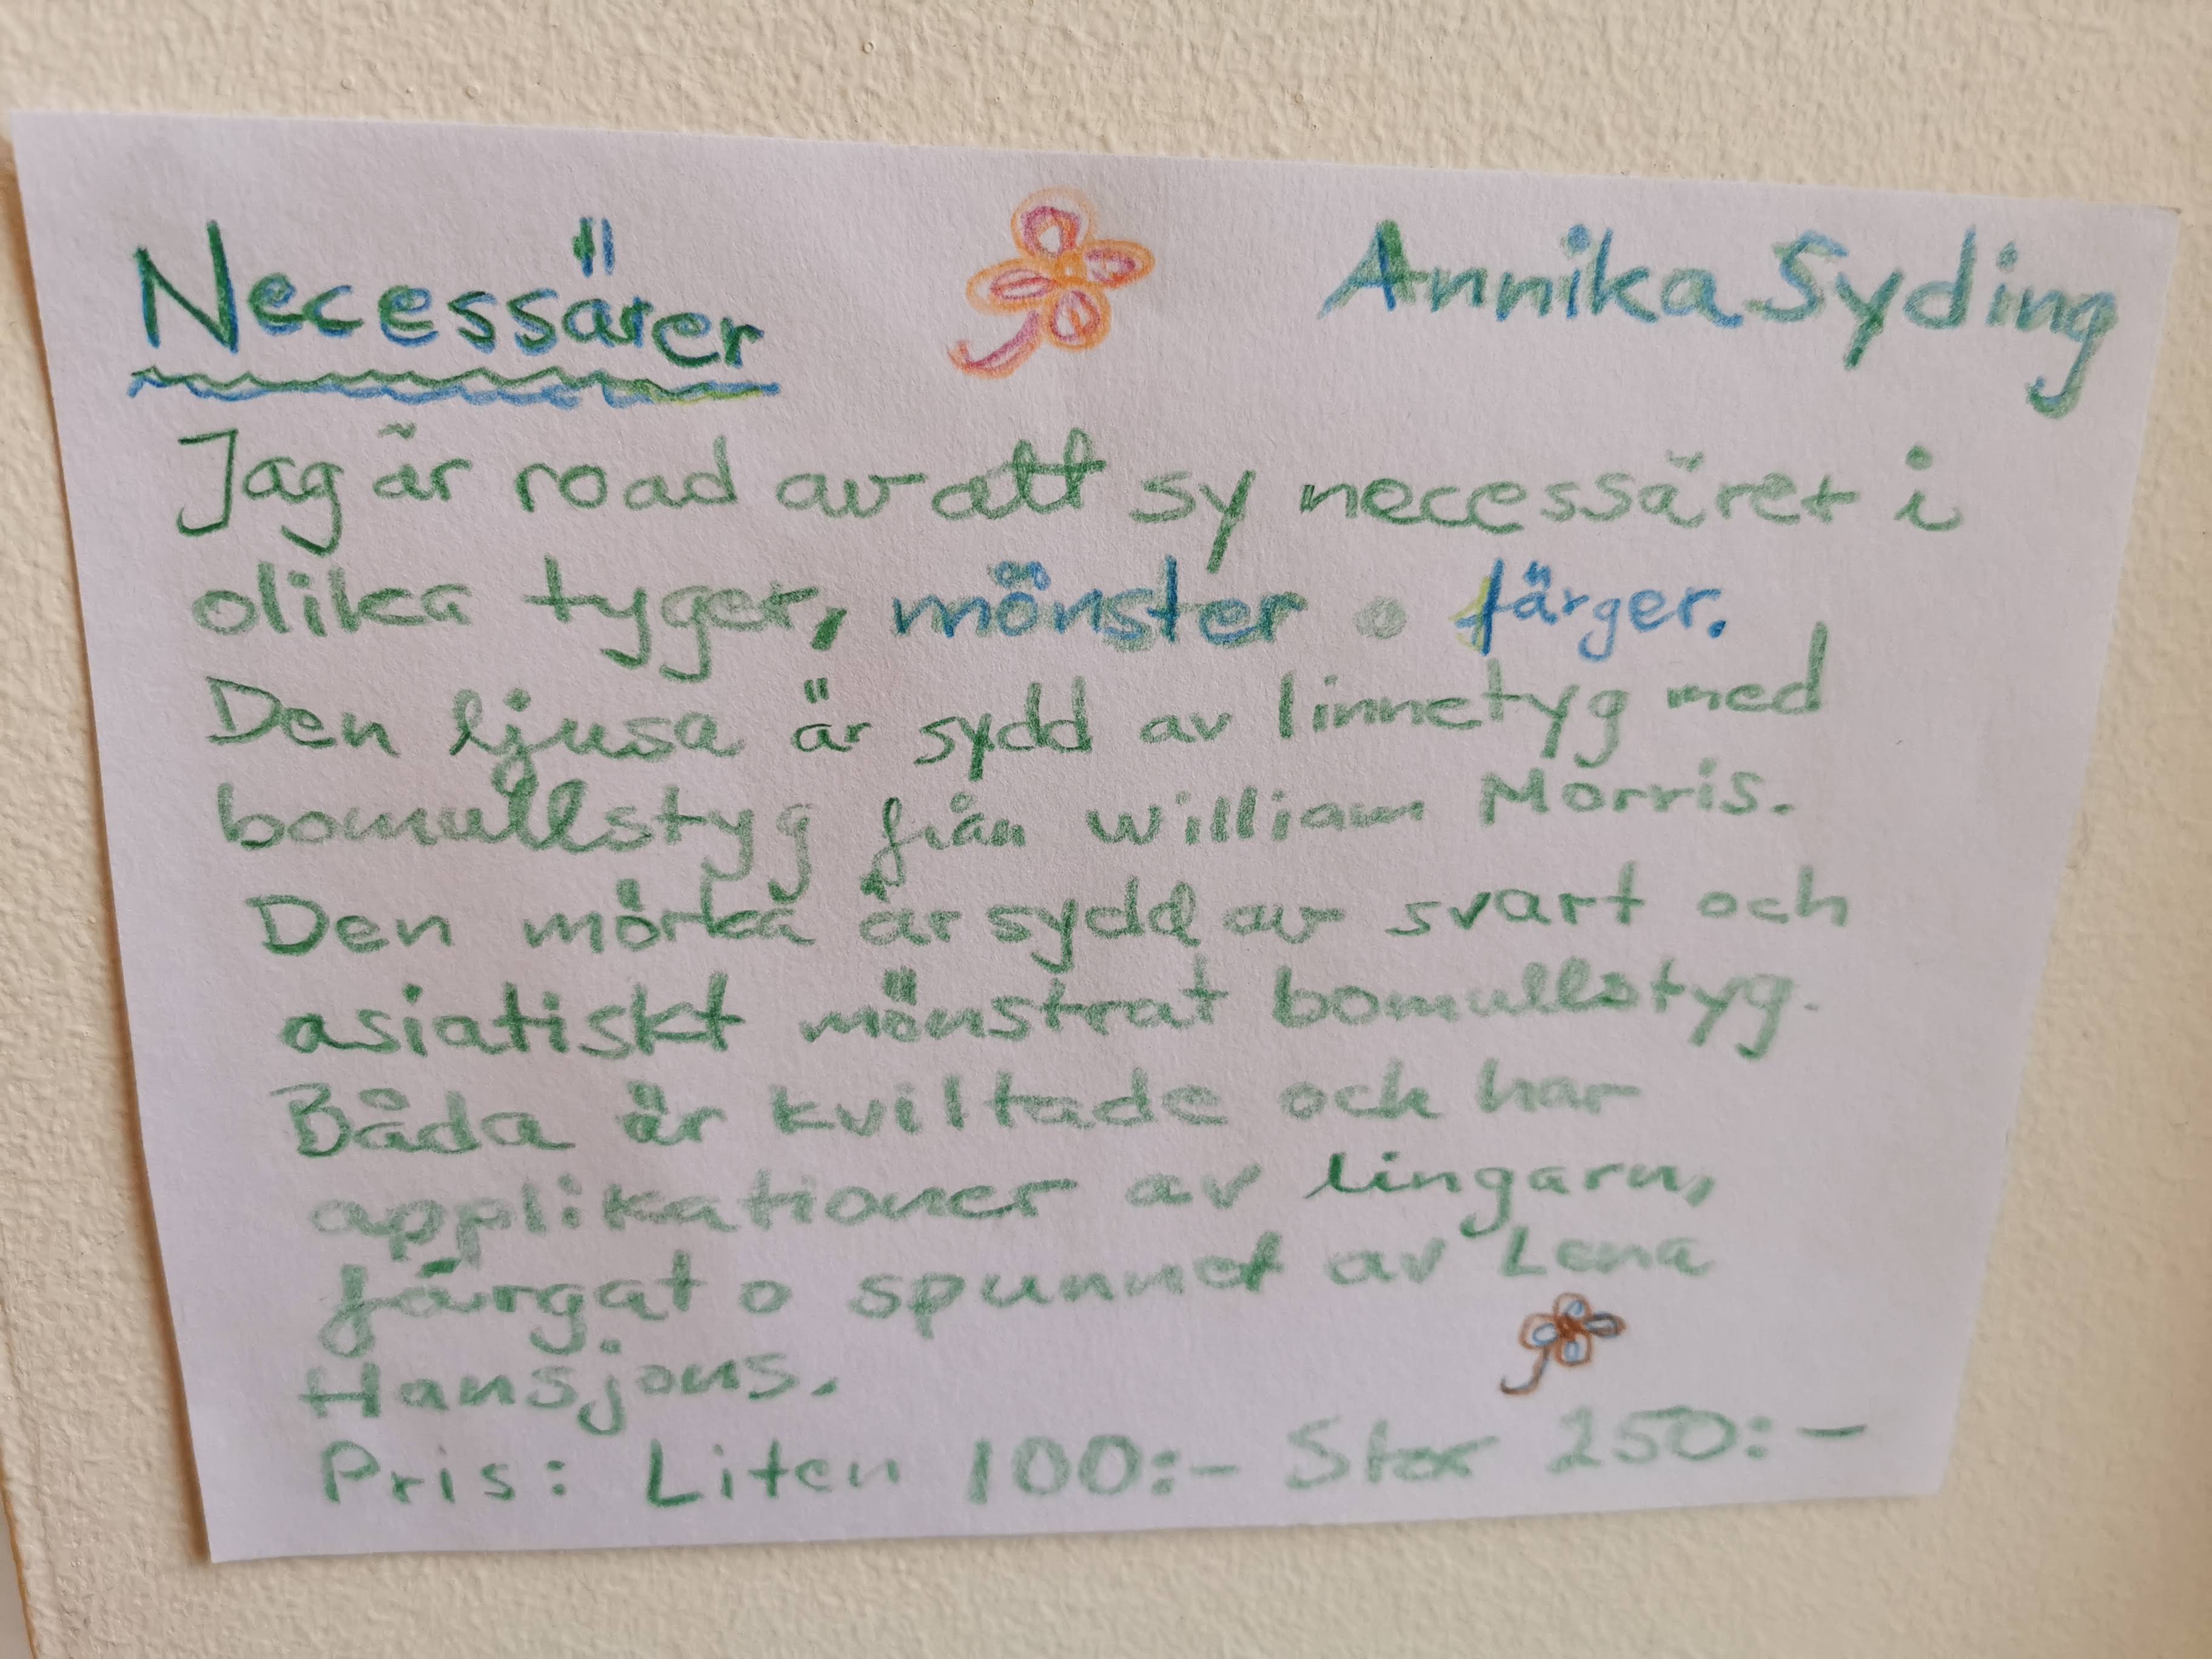 Necessärer
Annika Syding
Jag är road av att sy necessärer i
olika tyger, mönster o färger.
Den ljusa är sydd av linnetyg med
bomullstyg från William Morris.
Den mörka är sydd av svart och
asiatiskt mönstrat bomullstyg.
Båda är kviltade och har
applikationer av lingarn,
färgat o spunnet av Lena
Hansjons.
Pris: Liten 100:- Stor 250:-